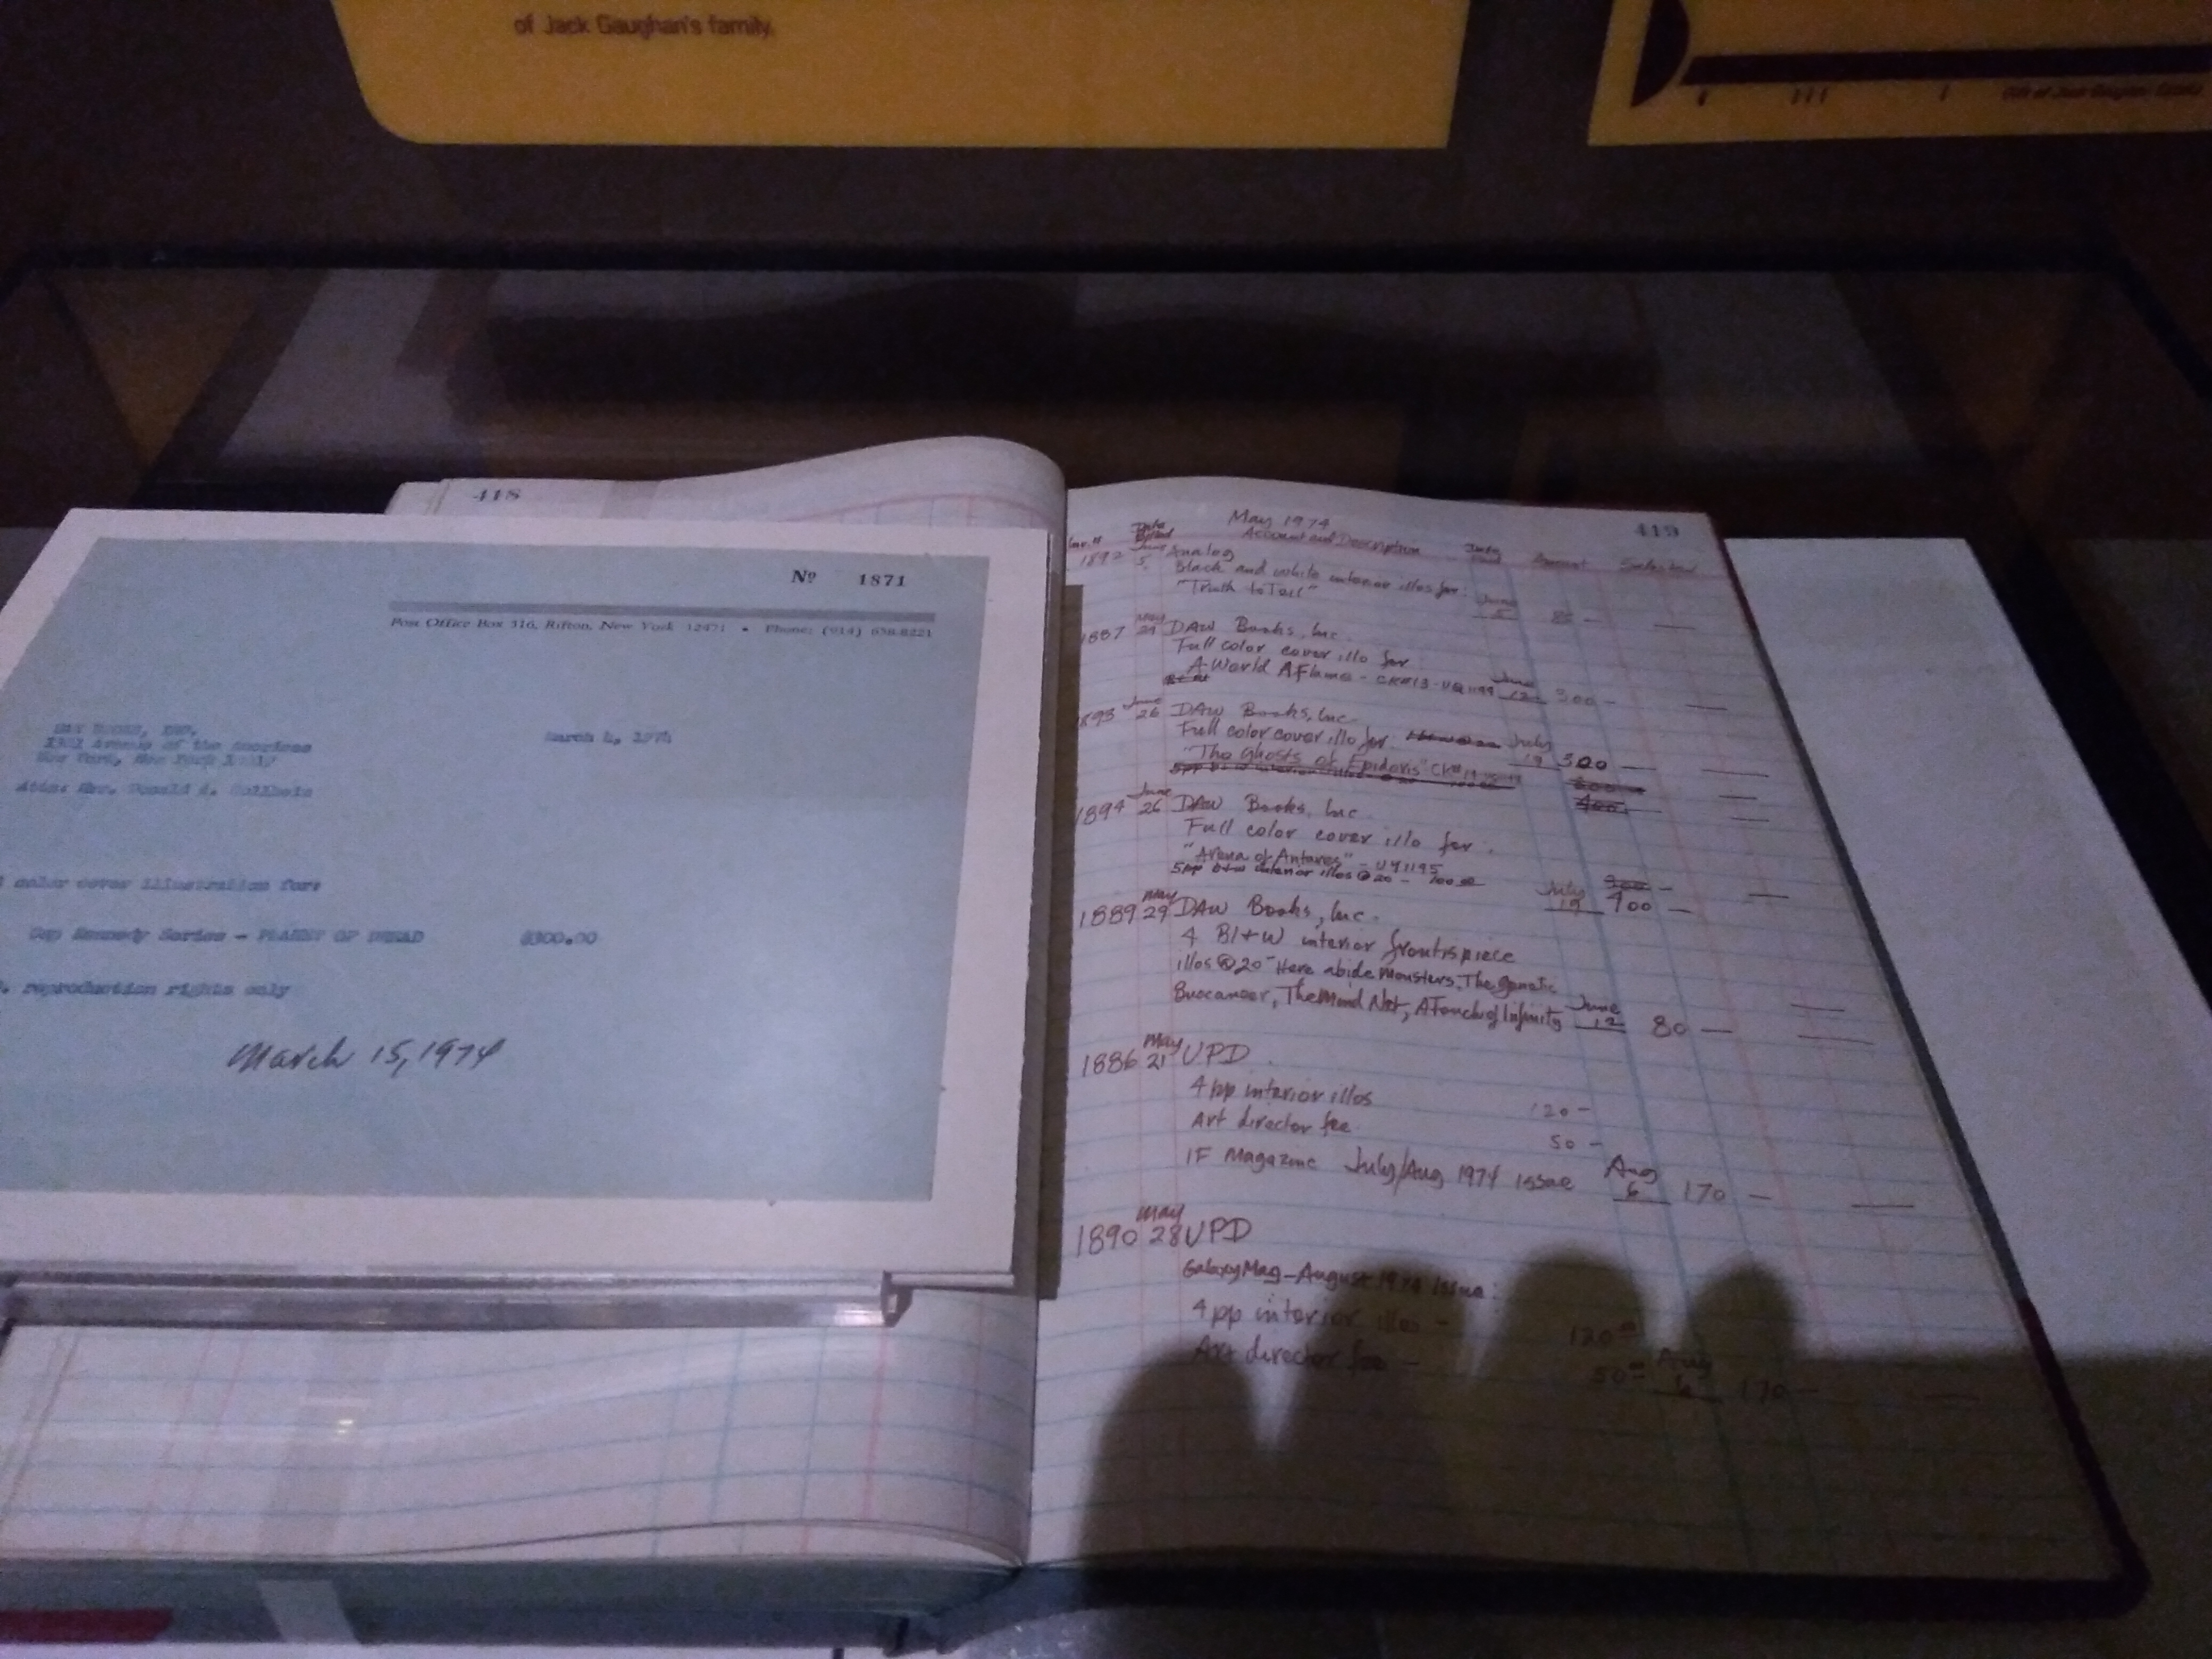 of Jack Gaughan's family.
Gift of Jack Gaughan Estate
418
Nº 1871
Post Office Box 516, Rifton, New York 12471 • Phone: (914) 658-8221
DAW BOOKS, INC.
1301 Avenue of the Americas
New York, New York
March 4, 1974
Attn: Mr. Donald A. Wollheim
color cover illustration for:
Cap Kennedy Series - PLANET OF DREAD $300.00
reproduction rights only
March 15, 1974
May 1974 419
Inv. # Date Billed Account and Description Date Paid Amount
1892 June 5 Analog
Black and white interior illos for:
"Truth to Tell" June 5 80 —
1887 May 29 DAW Books, Inc.
Full color cover illo for
A World Aflame - CK#13 - UQ1144 June 12 300 —
1893 June 26 DAW Books, Inc.
Full color cover illo for July
"The Ghosts of Epidoris" CK#14 19 300 —
400
1894 June 26 DAW Books, Inc.
Full color cover illo for
"Arena of Antares" - UY1145
5pp b+w interior illos @ 20 - 100.00 300 —
July 19 400 —
1889 May 29 DAW Books, Inc.
4 Bl+W interior frontispiece
illos @ 20 - Here abide Monsters, The Genetic
Buccaneer, The Mind Net, A Touch of Infinity June 12 80 —
1886 May 21 UPD
4pp interior illos 120 —
Art director fee 50 —
IF Magazine July/Aug 1974 issue Aug 6 170 —
1890 May 28 UPD
Galaxy Mag - August 1974 Issue:
4pp interior illos - 120.00
Art director fee - 50.00 Aug 6 170 —